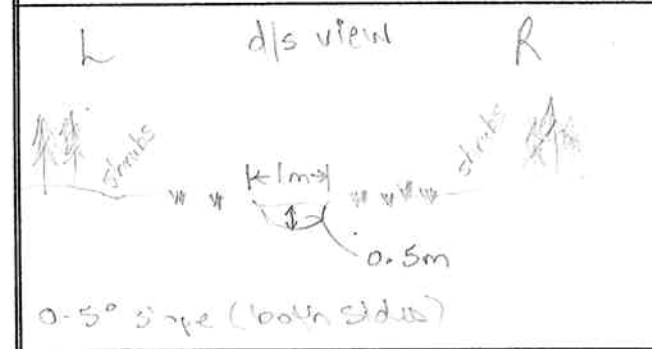 L d/s view R
shrubs shrubs
1m
0.5m
0-5° slope (both sides)